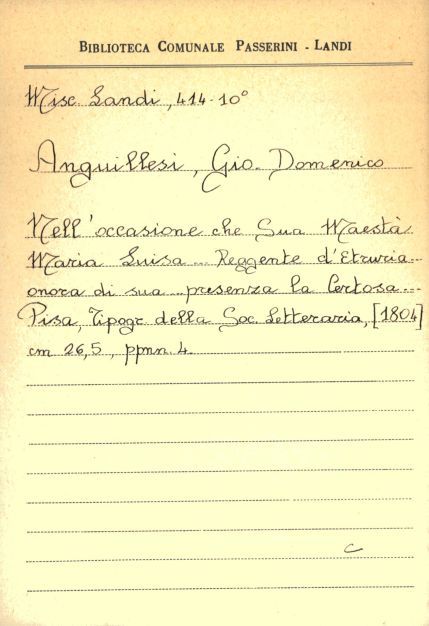 BIBLIOTECA COMUNALE PASSERINI - LANDI
Misc. Landi, 414-10°
Anguillesi, Gio. Domenico
Nell'occasione che Sua Maestà
Maria Luisa ... Reggente d'Etruria...
onora di sua ... presenza la Certosa...
Pisa, Tipogr. della Soc. Letteraria, [1804]
cm 26,5, ppnn. 4.
c